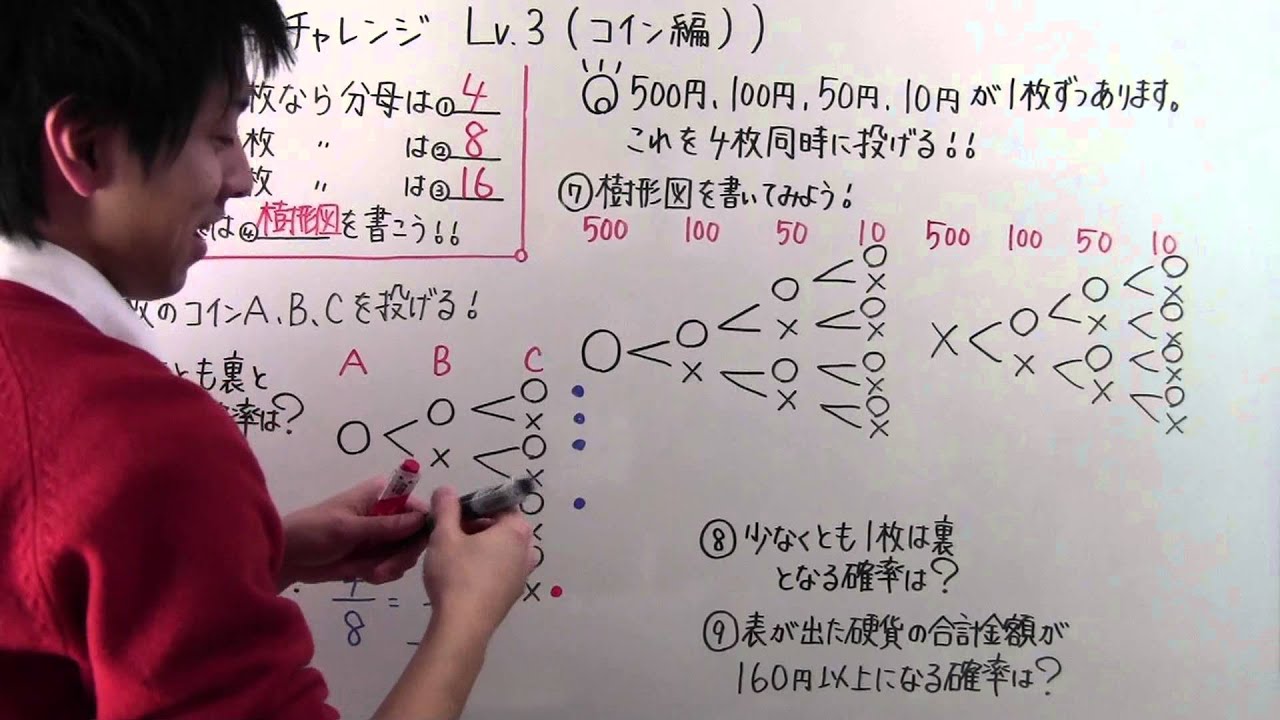 チャレンジ Lv.3 (コイン編))
枚なら分母は①4
枚 〃 は②8
枚 〃 は③16
は④樹形図を書こう!!
枚のコインA、B、Cを投げる!
とも裏と
率は?
A B C
○ ○ ○
×
× ○
×
○
×
○
×
8 =
500円、100円、50円、10円が1枚ずつあります。
これを4枚同時に投げる!!
⑦樹形図を書いてみよう!
500 100 50 10 500 100 50 10
○ ○ ○ ○
×
× ○
×
× ○ ○
×
× ○
×
× ○ ○ ○
×
× ○
×
× ○ ○
×
× ○
×
⑧少なくとも1枚は裏
となる確率は?
⑨表が出た硬貨の合計金額が
160円以上になる確率は?